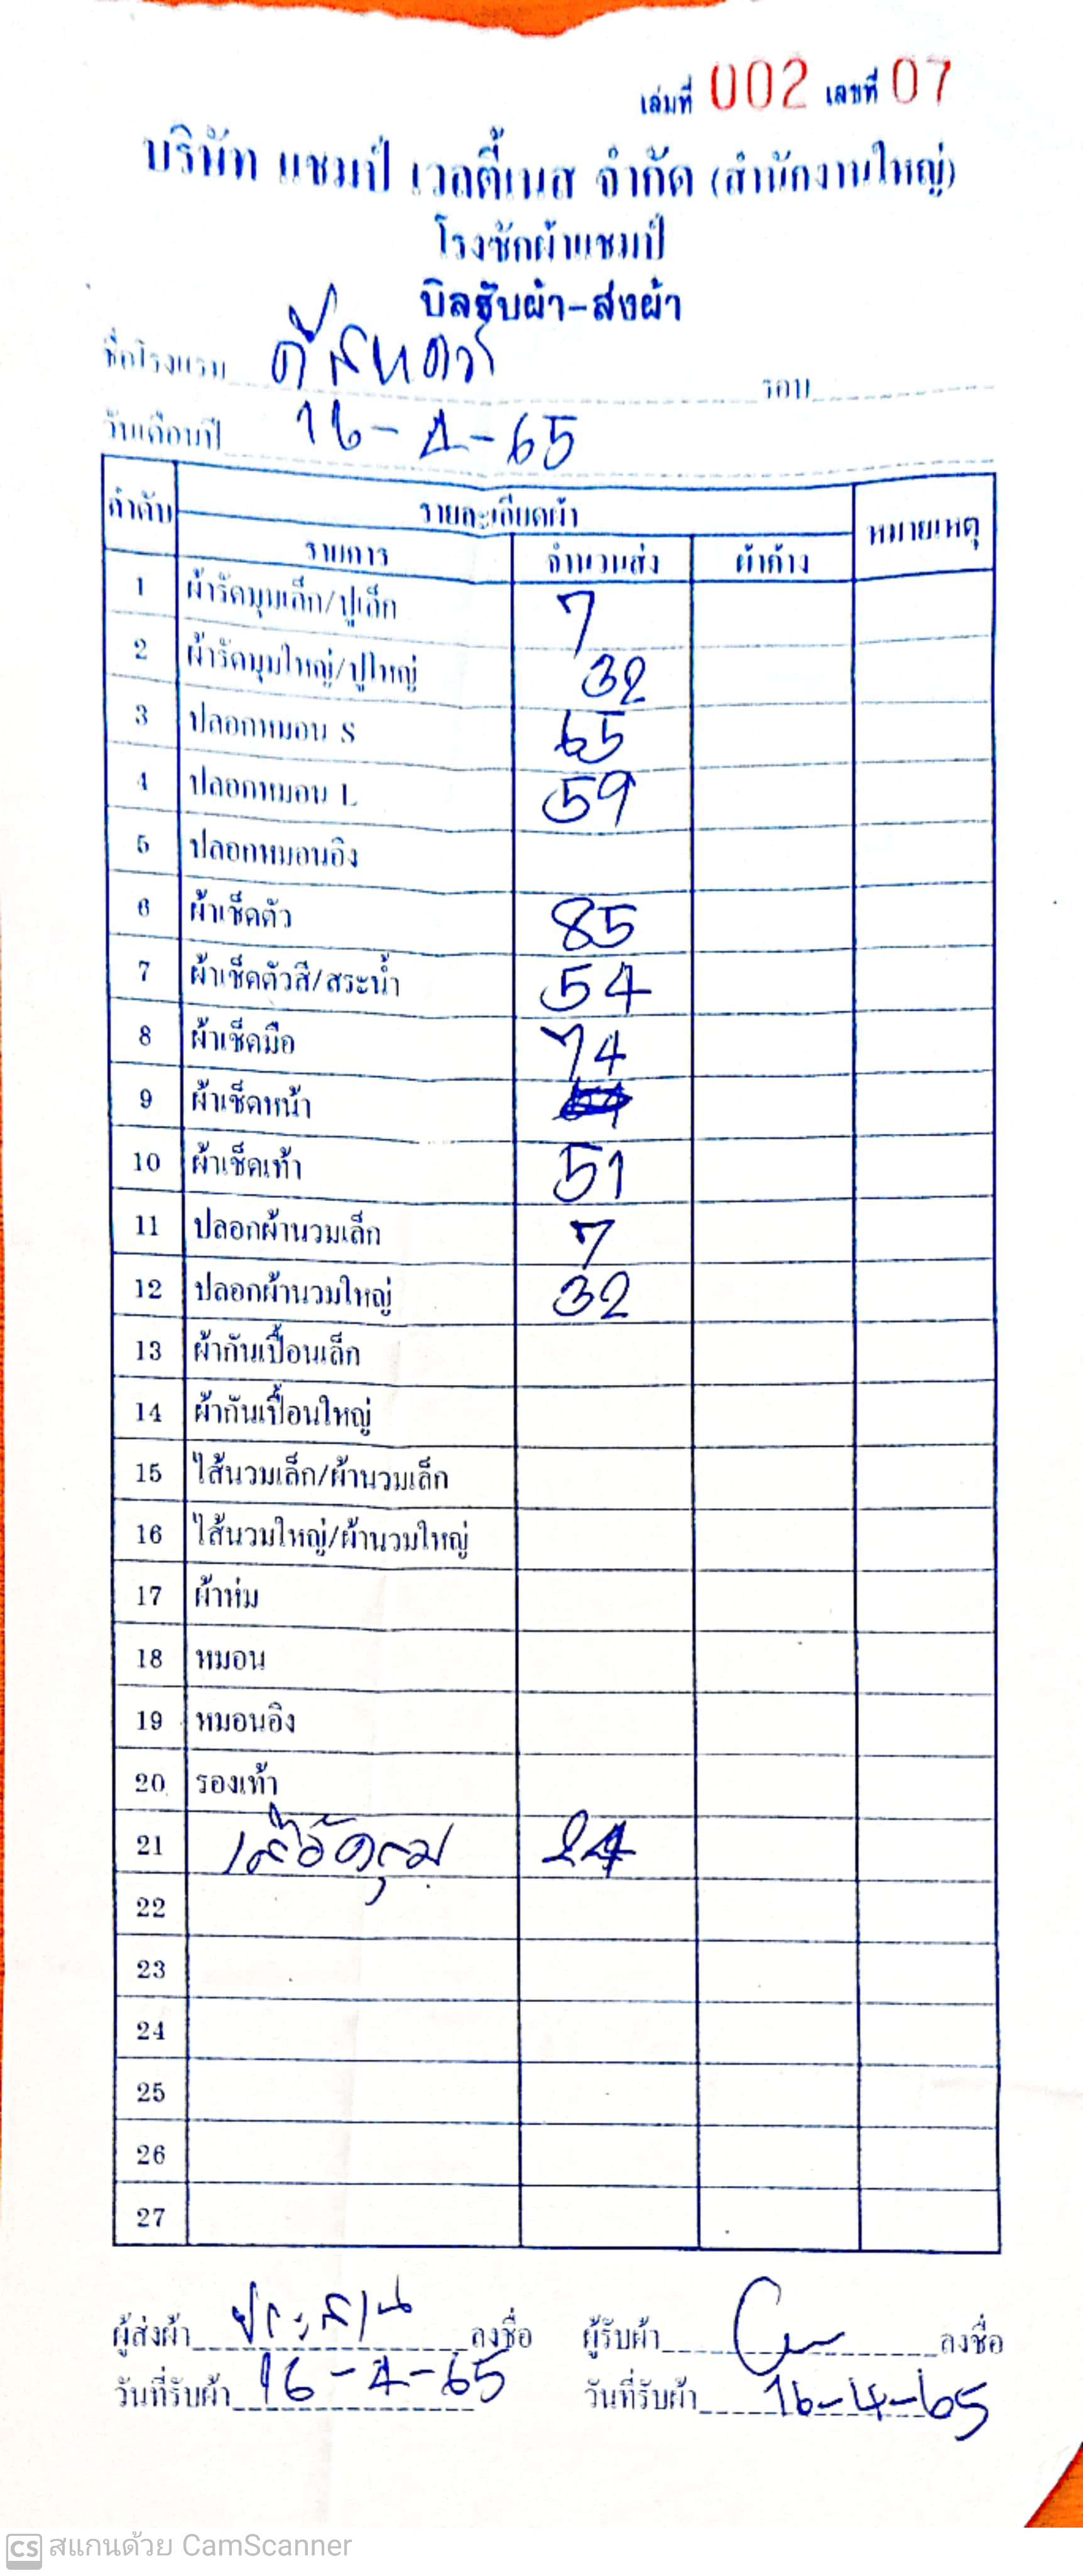 เล่มที่ 002 เลขที่ 07
บริษัท แชมป์ เวลตี้เนส จำกัด (สำนักงานใหญ่)
โรงซักผ้าแชมป์
บิลรับผ้า-ส่งผ้า
ชื่อโรงแรม รอบ
วันเดือนปี 16-4-65
ลำดับ รายละเอียดผ้า หมายเหตุ
รายการ จำนวนส่ง ผ้าค้าง
1 ผ้ารัดมุมเล็ก/ปูเล็ก 7
2 ผ้ารัดมุมใหญ่/ปูใหญ่ 32
3 ปลอกหมอน S 65
4 ปลอกหมอน L 59
5 ปลอกหมอนอิง
6 ผ้าเช็ดตัว 85
7 ผ้าเช็ดตัวสี/สระน้ำ 54
8 ผ้าเช็ดมือ 74
9 ผ้าเช็ดหน้า
10 ผ้าเช็ดเท้า 51
11 ปลอกผ้านวมเล็ก 7
12 ปลอกผ้านวมใหญ่ 32
13 ผ้ากันเปื้อนเล็ก
14 ผ้ากันเปื้อนใหญ่
15 ไส้นวมเล็ก/ผ้านวมเล็ก
16 ไส้นวมใหญ่/ผ้านวมใหญ่
17 ผ้าห่ม
18 หมอน
19 หมอนอิง
20 รองเท้า
21 เสื้อคลุม 24
22
23
24
25
26
27
ผู้ส่งผ้า ประสาน ลงชื่อ ผู้รับผ้า ลงชื่อ
วันที่รับผ้า 16-4-65 วันที่รับผ้า 16-4-65
CS สแกนด้วย CamScanner